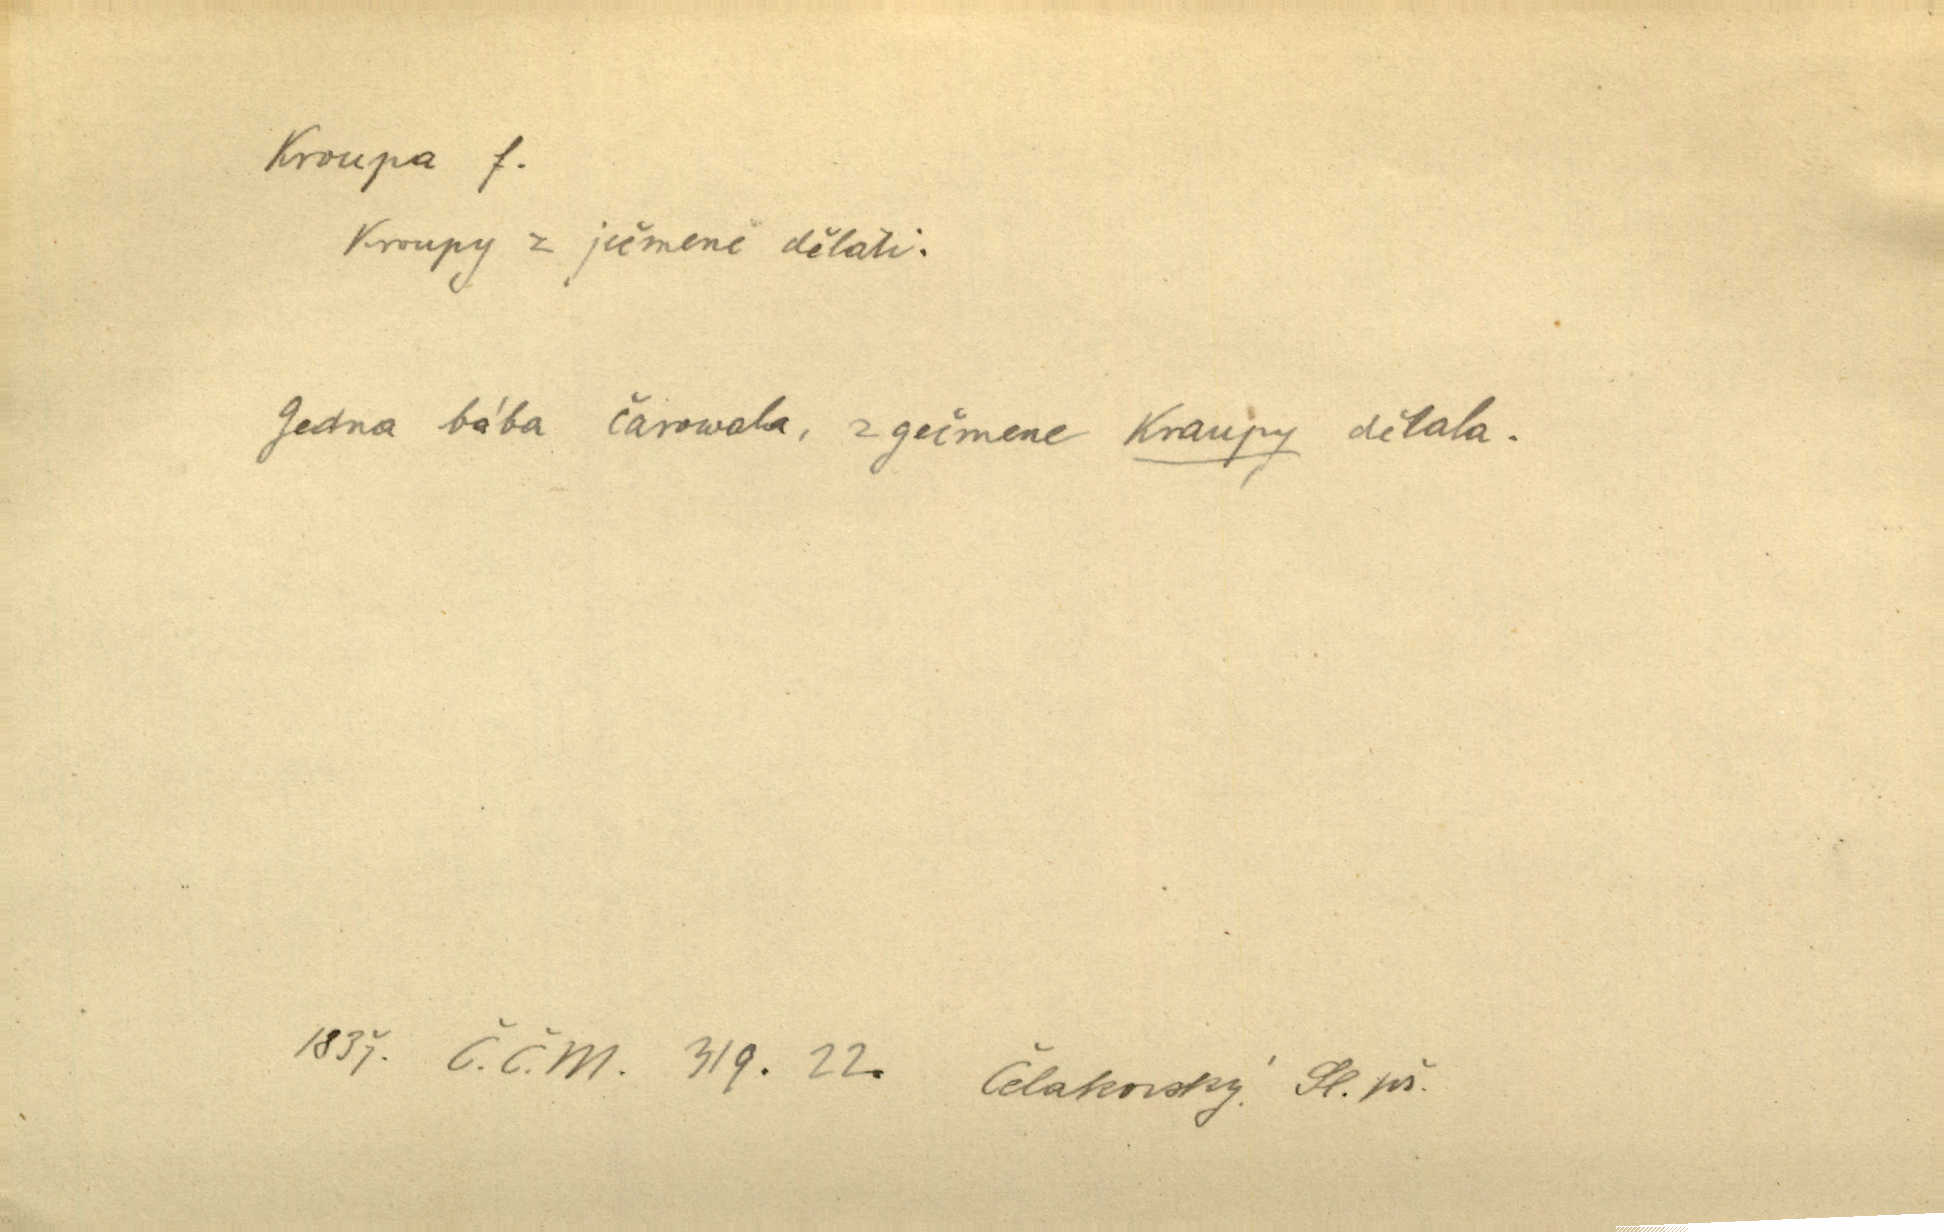 Kroupa f.
Kroupy z ječmene dělati.
Gedna bába čarowala, z gečmene Kraupy dělala.
1837. Č.Č.M. 319. 22. Čelakovský. Sl. pís.